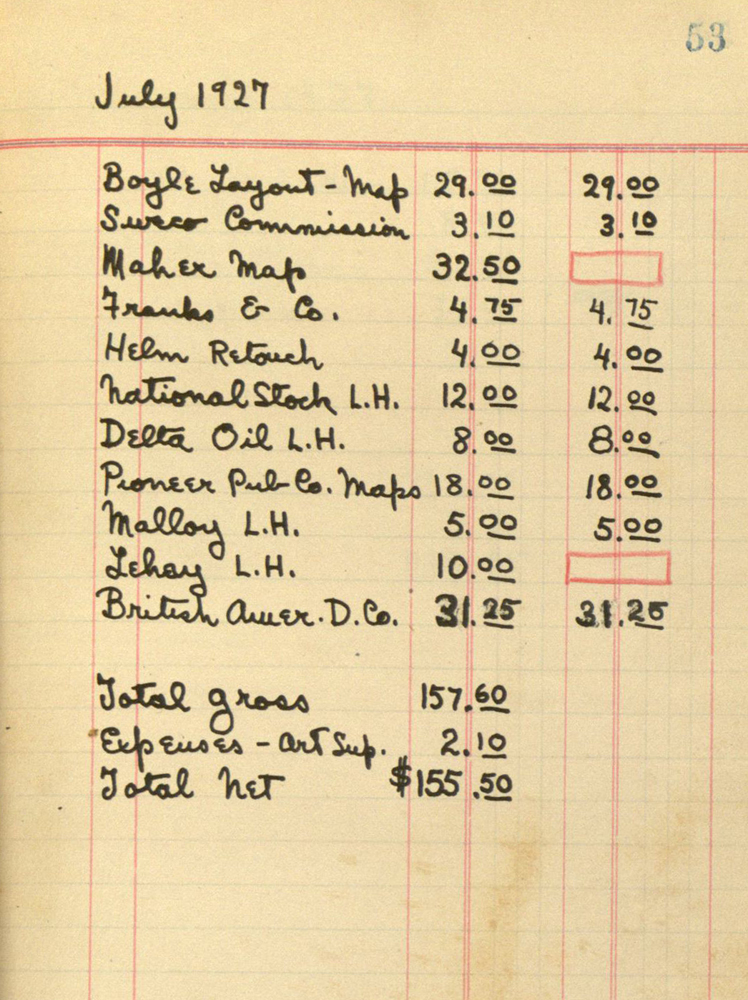 53
July 1927
Boyle Layout - Map 29.00 29.00
Sweco Commission 3.10 3.10
Maher Map 32.50
Franks & Co. 4.75 4.75
Helm Retouch 4.00 4.00
National Stock L.H. 12.00 12.00
Delta Oil L.H. 8.00 8.00
Pioneer Pub Co. Maps 18.00 18.00
Malloy L.H. 5.00 5.00
Lehay L.H. 10.00
British Amer. D. Co. 31.25 31.25
Total gross 157.60
Expenses - Art Sup. 2.10
Total Net $155.50